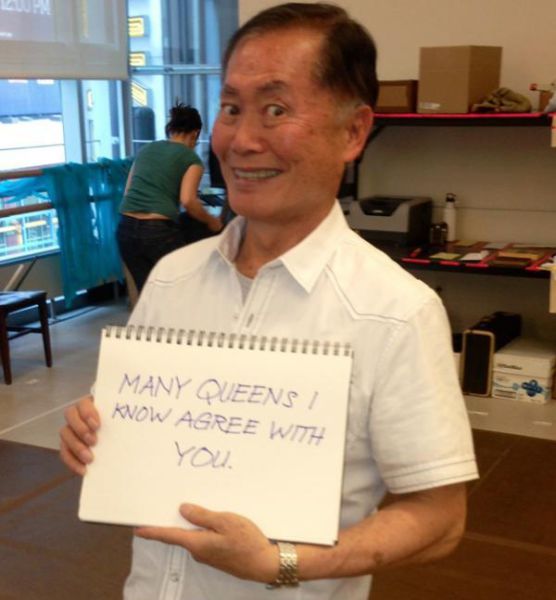 12:00 PM
MANY QUEENS I
KNOW AGREE WITH
YOU.